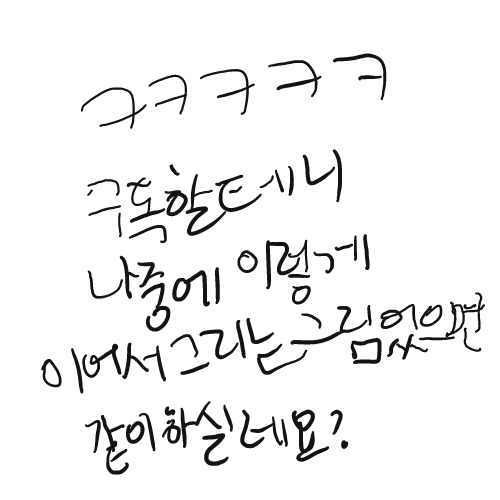 ㅋㅋㅋㅋㅋ
구독할테니
나중에 이렇게
이어서 그리는 그림있으면
같이하실래요?